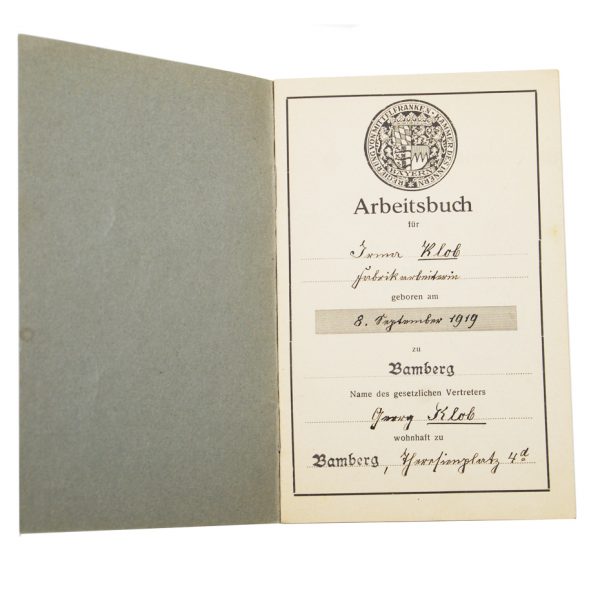 REGIERUNG VON MITTELFRANKEN · KAMMER DES INNERN
BAYERN
Arbeitsbuch
für
Irma Klob
Fabrikarbeiterin
geboren am
8. September 1919
zu
Bamberg
Name des gesetzlichen Vertreters
Georg Klob
wohnhaft zu
Bamberg, Theresienplatz 4d